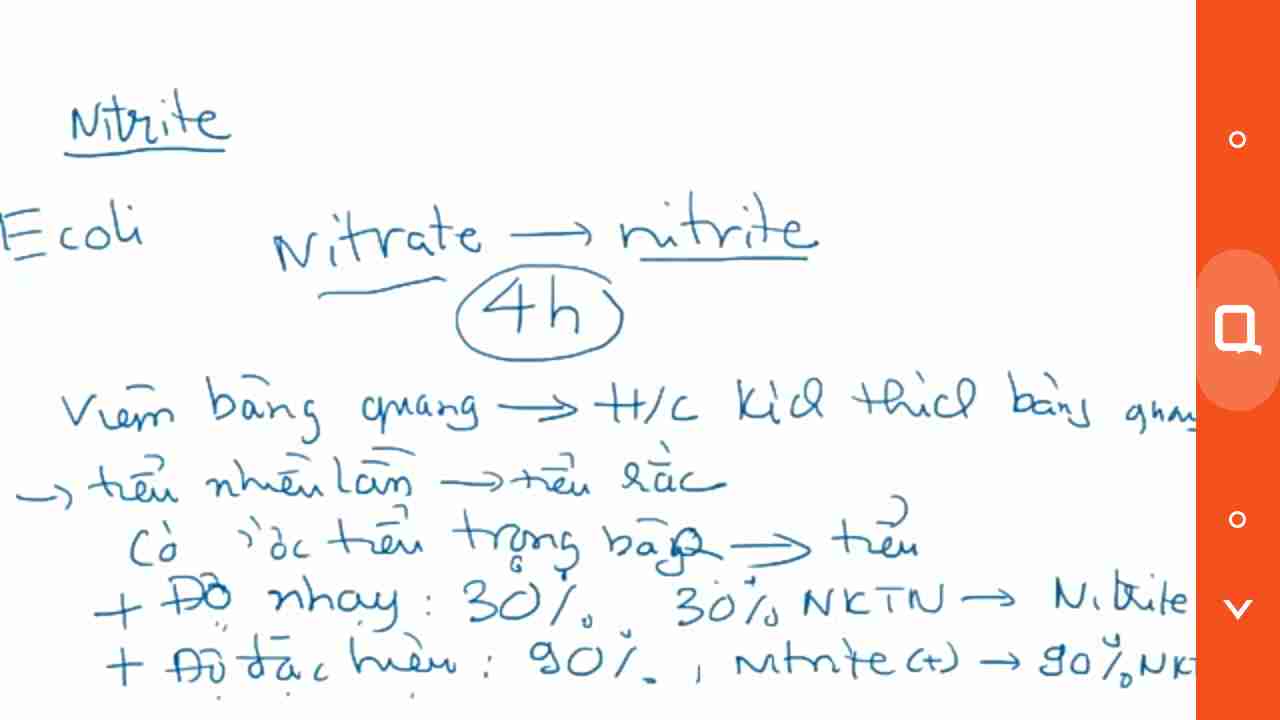 Nitrite
E coli Nitrate → nitrite
4h
Viêm bàng quang → H/C kích thích bàng quang
→ tiểu nhiều lần → tiểu rắc
Có nước tiểu trong bàng → tiểu
+ Độ nhạy: 30%. 30% NKTN → Nitrite
+ Độ đặc hiệu: 90%., Nitrite (+) → 90% NKT